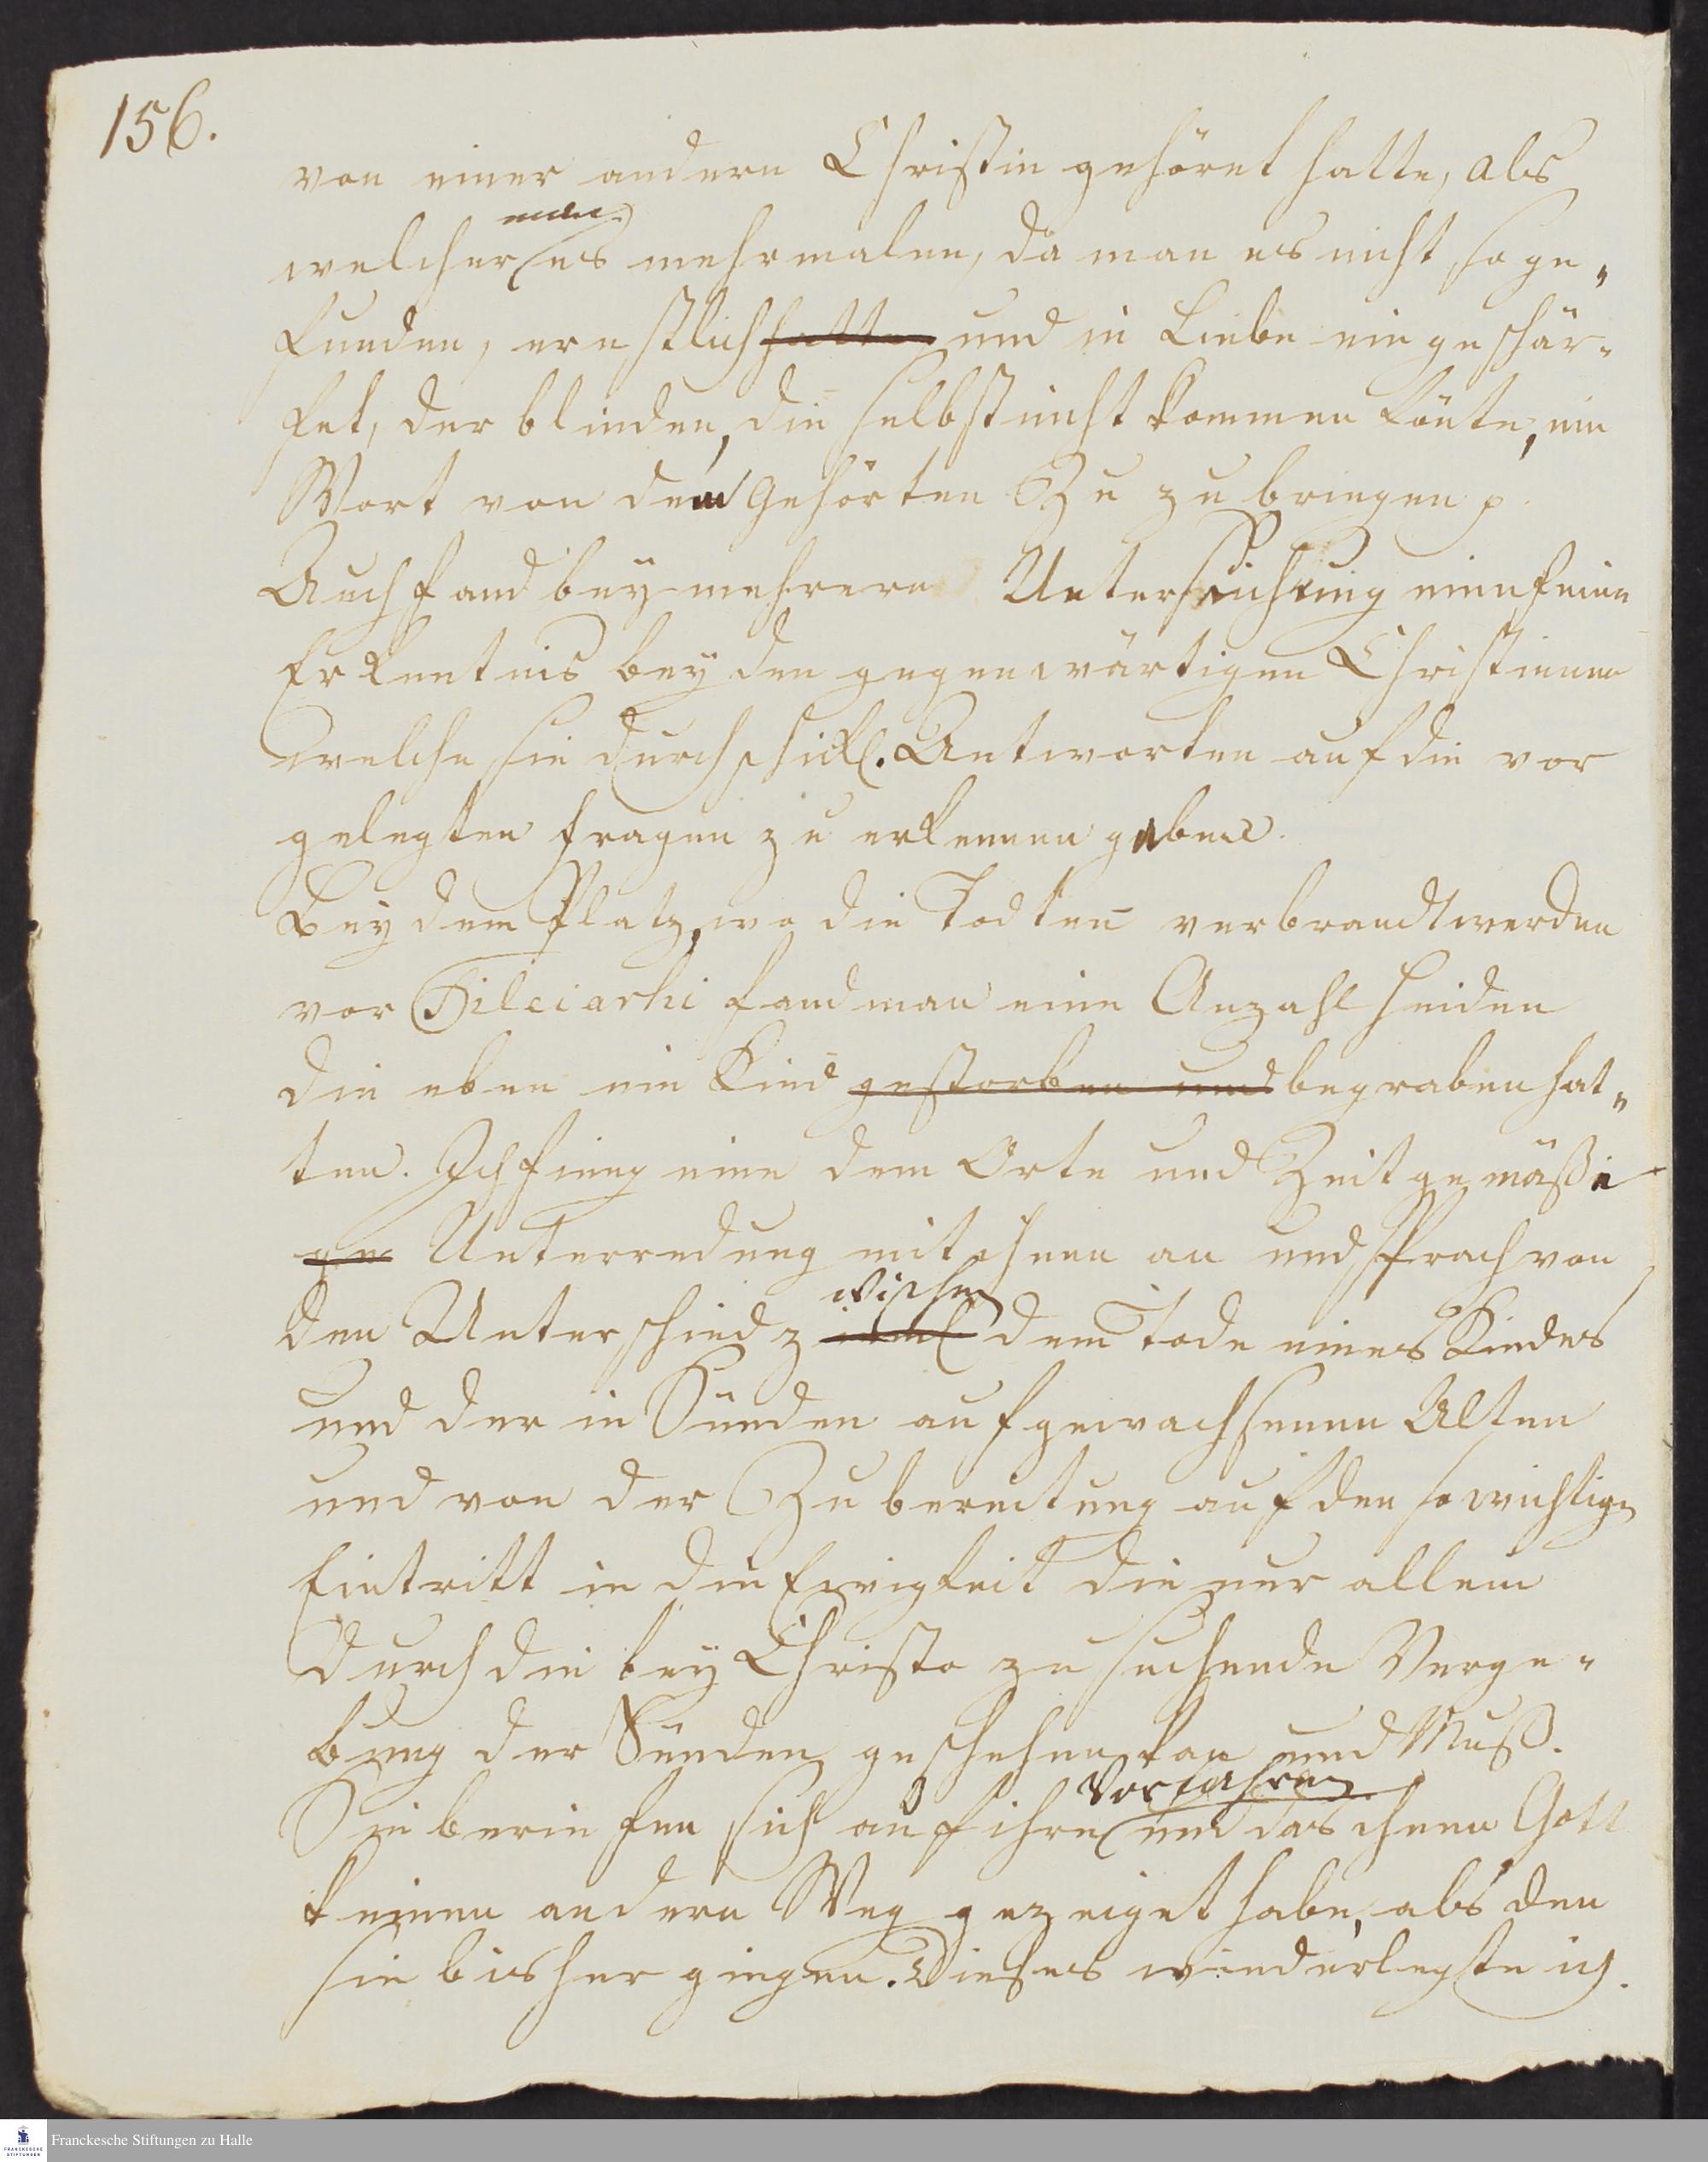 156.
von einer andern Christin gehöret hatte, als
welcher man es mehrmalen, da man es nicht so ge„
funden, ernstlich hatte und in Liebe eingeschär„
fet, der blinden, die selbst nicht kommen könte, ein
Wort von dem Gehörten Zu zu bringen p.
Auch fand bey mehrerer Untersuchung eine feine
Erkentnis bey den gegenwärtigen Christinnen
welche sie durch schickl. Antworten auf die vor
gelegten Fragen zu erkennen gaben.
Bey dem Platz, wo die Todten verbrandt werden
vor Dileiarhi fand man eine Anzahl Heiden
die eben ein Kind gestorben und begraben hat„
ten. Ich fieng eine dem Orte und Zeit gemäße
ge Unterredung mit ihnen an und sprach von
wischen
den Unterschied z dem Tode eines Kindes
und der in Sünden aufgewachsenen Alten
und von der Zubereitung auf den so wichtigen
Eintritt in die Ewigkeit die nur allein
durch die bey Christo zu suchende Verge„
bung der Sünden geschehen kan und Muß.
Vorfahren
Sie beriefen sich auf ihre und das ihnen Gott
keinen andern Weg gezeiget habe, als den
sie bisher giengen. Dieses wiederlegte ich.
Franckesche Stiftungen zu Halle